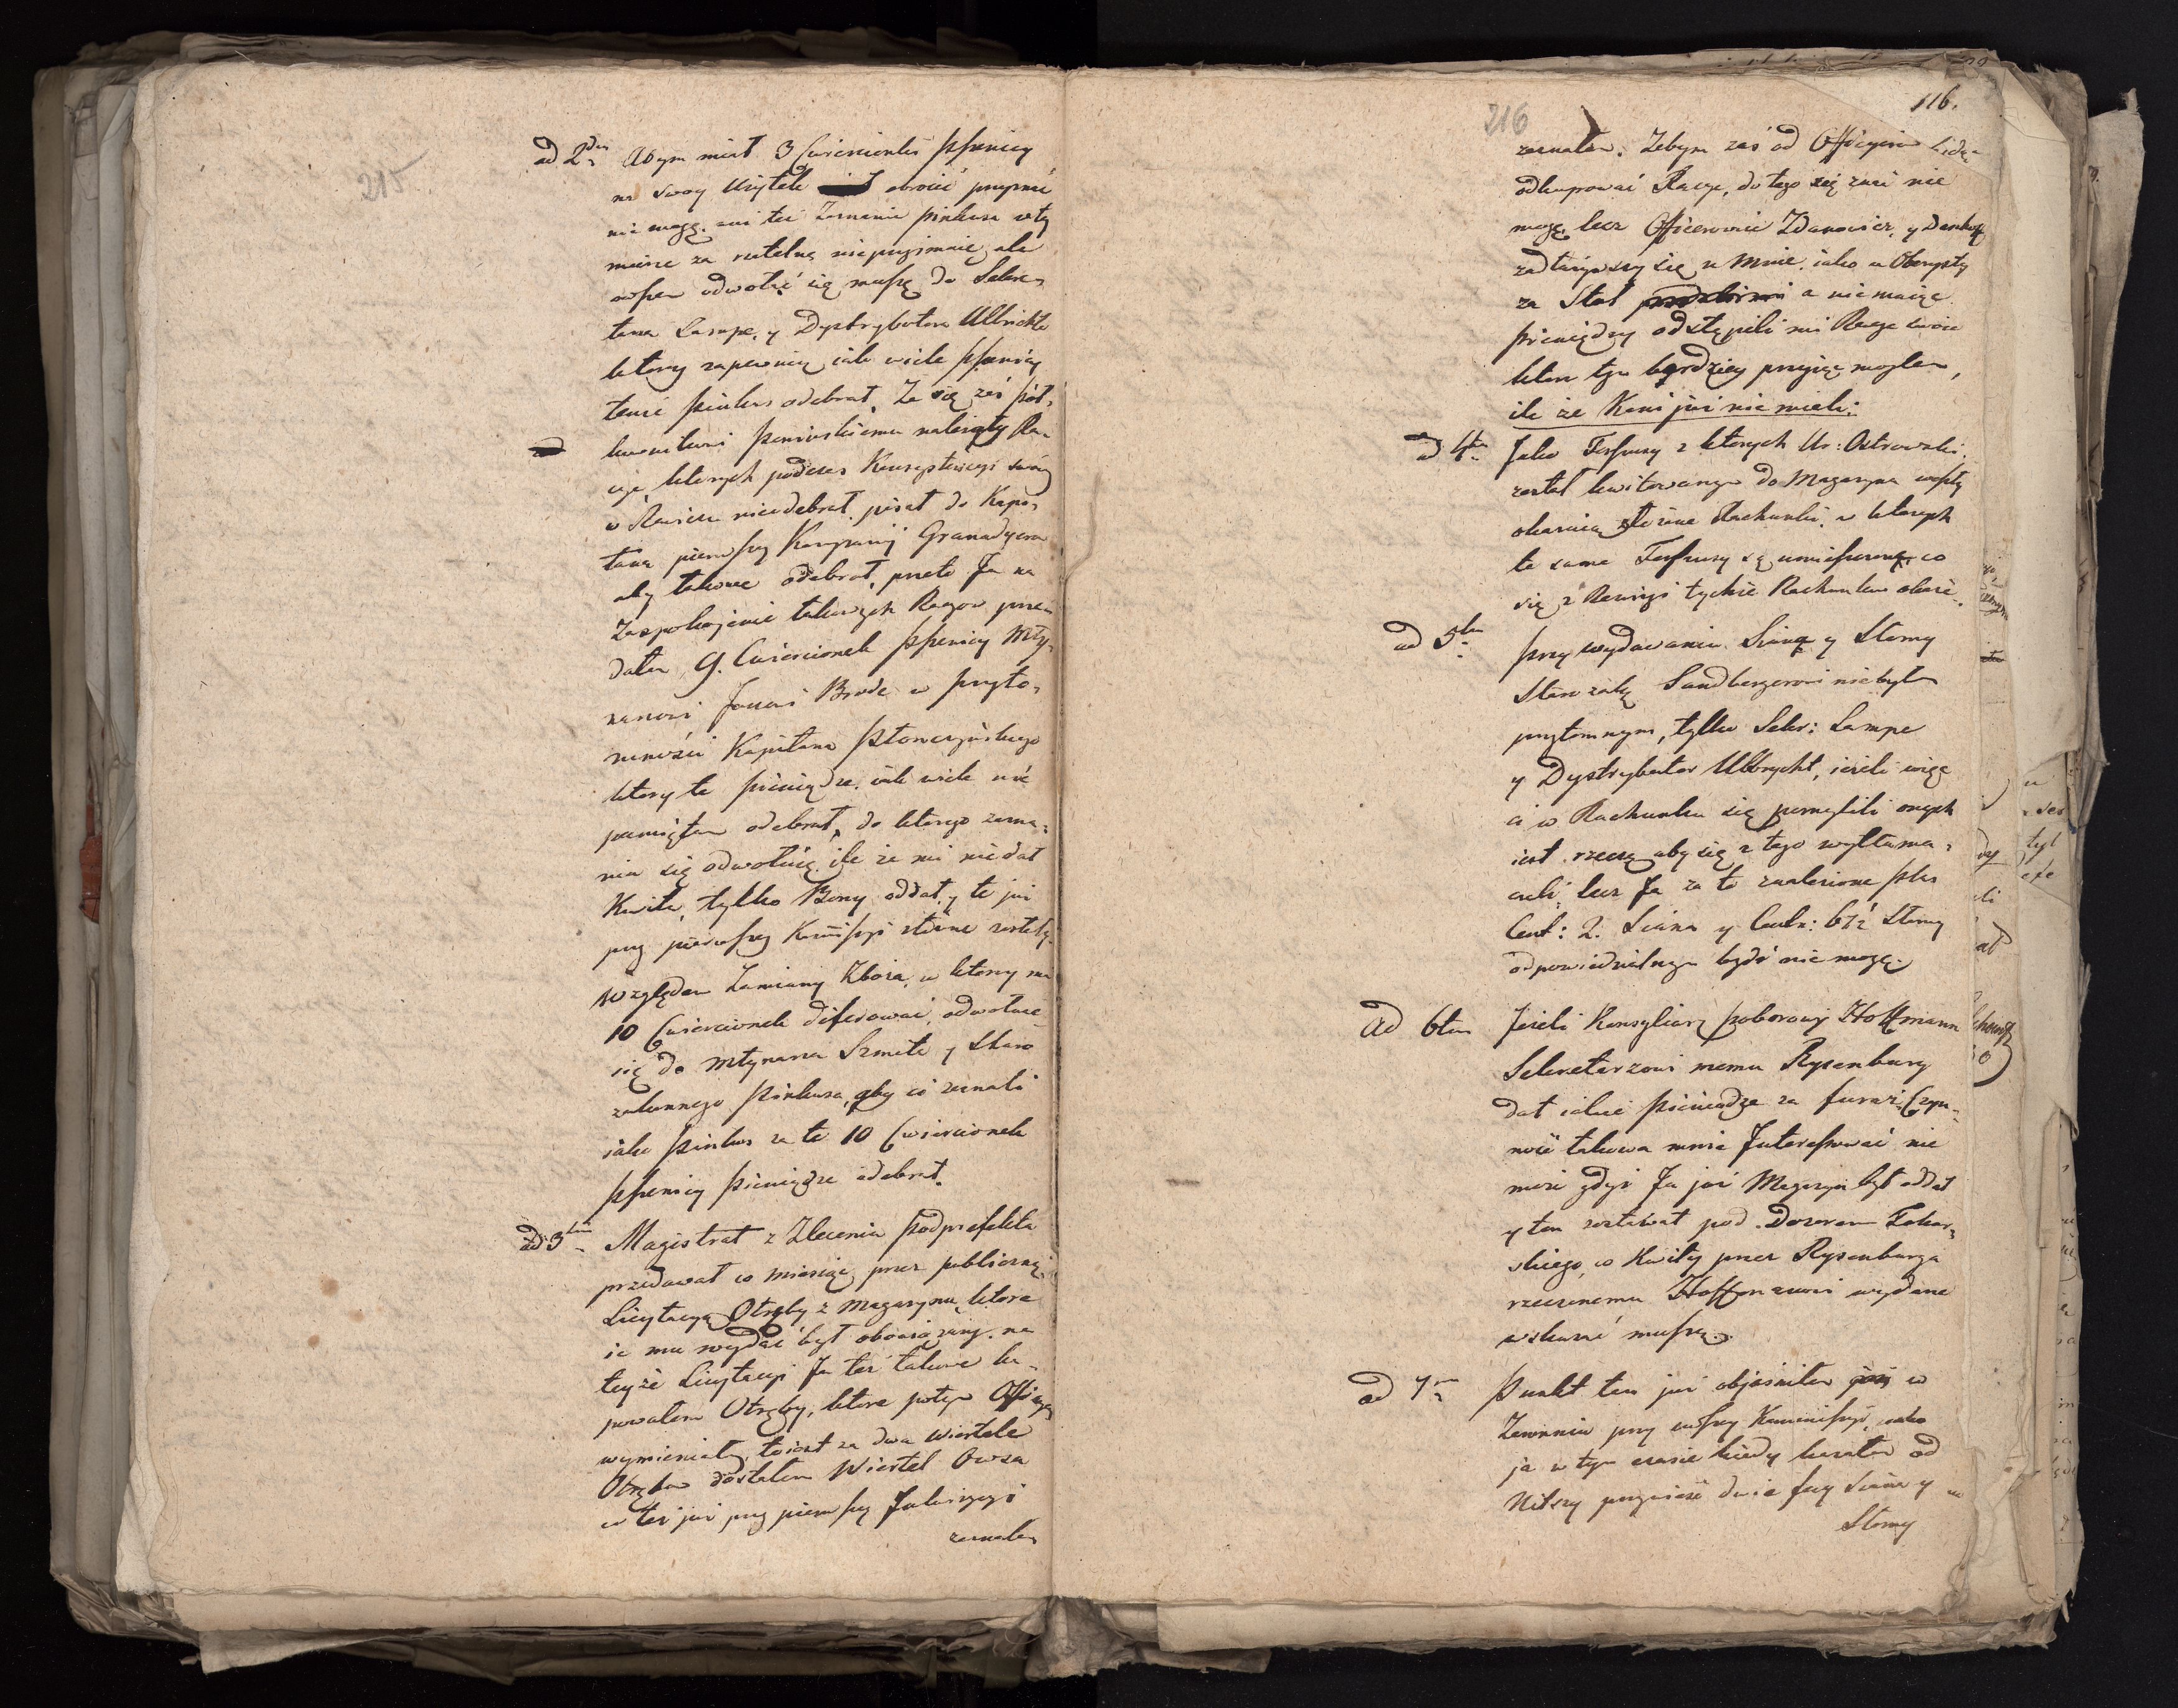 215
ad 2dum Abym miał 3 Cwiercionki Pszenicy
na swoy Użytek obrocić przyznać
nie mogę, ani też Zeznanie Pinkusa w tey
mierze za rzetelną nieprzyimuię, ale
owszem odwołać się muszę do Sekre,
tarza Lampe, y Dystrybutora Ulbrichta
ktorzy zapewnią iak wiele Pszenicy
tenże Pinkus odebrał, Ze się zaś Puł,
kownikowi Peninskiemu należały Ra,
cye ktorych podczas Konsystencyi swoiey
w Rawiczu nieodebrał, pisał do Kapi,
tana pierwszey Kompanij Granadyerow
aby takowe odebrał, przeto Ja na
Zaspokojenie takowych Racyow prze,
dałem 9. Cwiercionek Pszenicy Mły,
narzowi Brode w przyto,
mności Kapitana Płonczyńskiego
ktory te pieniądze, iak wiele nie
pamiętam odebrał, do ktorego zezna,
nia się odwołuię, ile że mi nie dał
Kwitu, tylko Bony oddał, y te już
przy pierwszey Kommissyi złożone zostały.
Względem Zamiany Zboża, w ktorey ma
10 Cwiercionek diferować, odwołuie
się do Młynarza Szmita y Staro
zakonnego Pinkusa, aby ci zeznali
iako Pinkus za te 10 Cwiercionek
Pszenicy pieniądze odebrał.
ad 3tium Magistrat z Zlecenia Podprefekta
przedawał co miesiąc przez publiczną
Licytacyą Otręby z Magazynu, ktore
ia mu wydać był obowiązany, na
teyże Licytacyi Ja też takowe ku,
powałem Otręby, ktore potym
wymieniałem, to iest za dwa Wiertele
Otrębow dostałem Wiertel Owsa
co też już przy pierwszey Inkwizycyi
zeznałem
216
116.
zeznałem. Zebym zaś od Officyerow
odkupować Racye, do tego się znać nie
mogę, lecz Officerowie Zdanowicz, y
zadłużywszy się u Mnie, iako u Oberzysty
za Stoł a niemaiąc
pieniędzy odstąpili mi Racye swoie
ktore tym bardziey przyiąc mogłem,
ile że Koni już nie mieli.
ad 4tum Jako Fosspusy z ktorych Ur: Ostrowski
został kwitowanym do Magazynu weszły
okazuią złożone Rachunki, w ktorych
te same Fosspusy są umieszczone, co
się z Rewizyi tychże Rachunkow okaże.
ad 5tum Przy wydawaniu Siana y Słomy
Starozak: Sandbergerowi niebyłem
przytomnym, tylko Sekr: Lampe
y Dystrybutor Ulbrycht, ieżeli więc
ci w Rachunku się pomylili onych
iest rzeczą aby się z tego wytłuma,
czyli, lecz Ja za to znalezione Plus
Cent: 2. Siana y Centn: 6½ Słomy
odpowiedzialnym bydź nie mogę.
Ad 6tum Jeżeli Konsyliarz Poborowy Hoffmann
Sekretarzowi memu Rysenburg
dał iakie pieniądze za furaż, Czyn,
ność takowa mnie Interessować nie
może gdyż Ja już Magazyn był oddał
y ten zostawał pod Dozorem Tokar,
skiego, co Kwity przez Rysenburga
rzeczonemu Hoffmanowi wydane
wskazać muszą.
ad 7um Punkt ten już objaśniłem w
Zeznaniu przy Kommissyi, iako
ja w tym czasie kiedy kazałem od
Nitszy przywieść dwie fury Siana y
Słomy